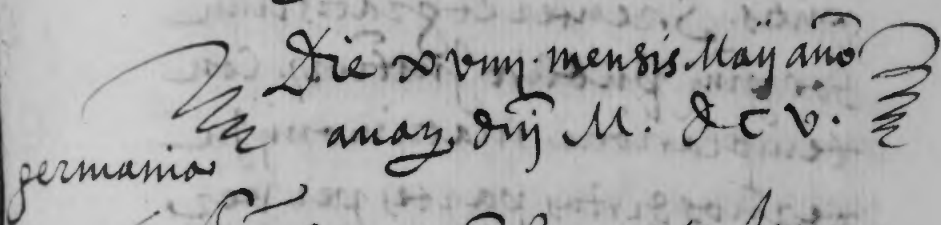 Die xviiij. mensis Maij año
anaţ dñj M. dc v.
germania